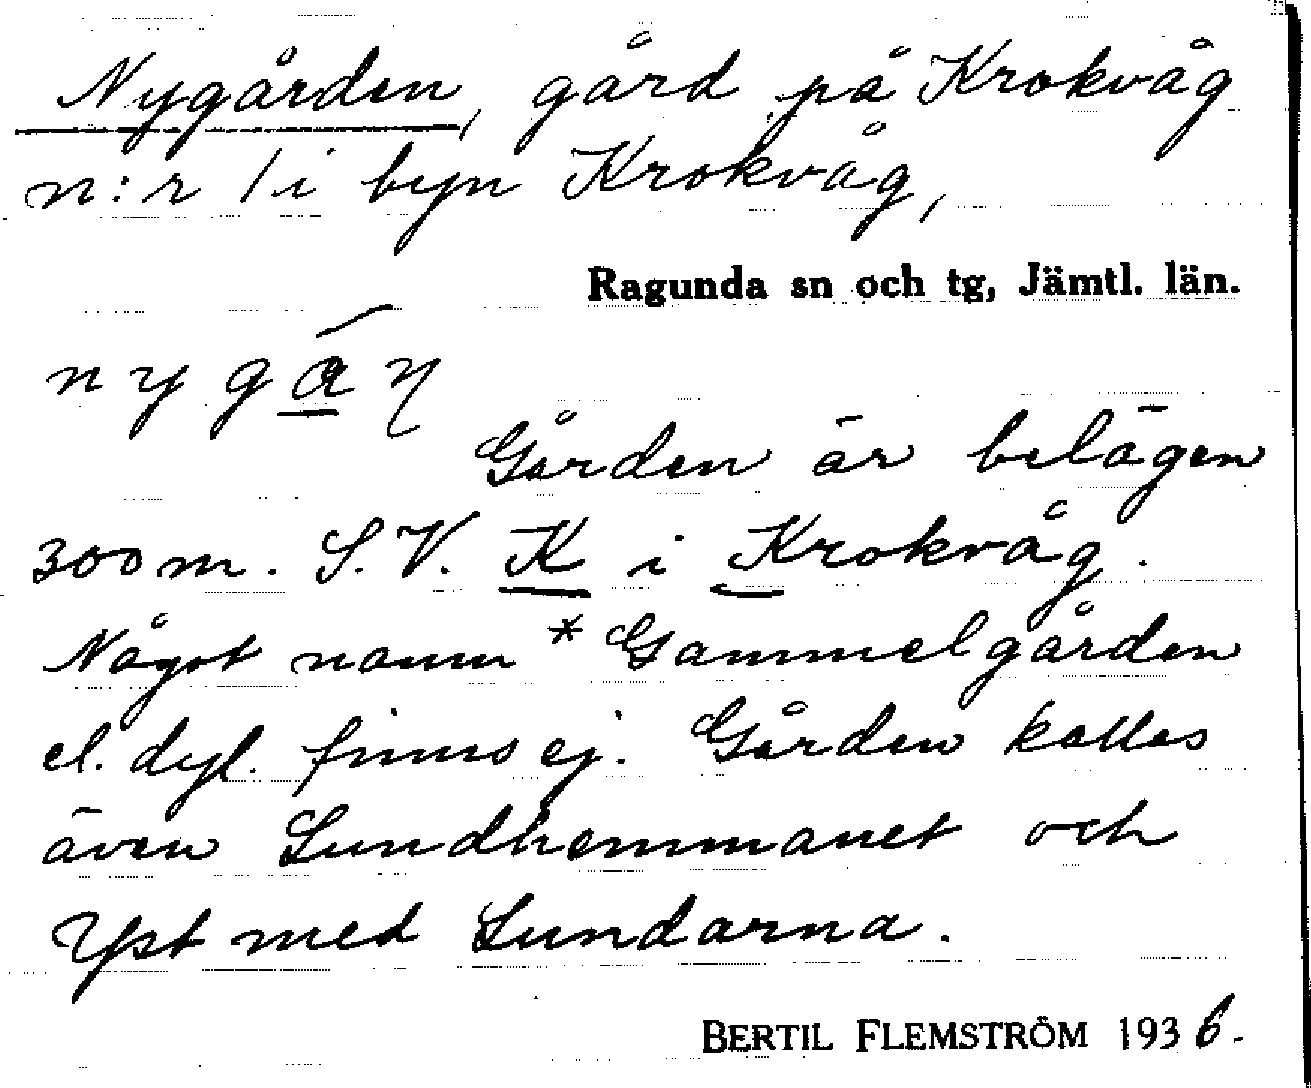 Nygården, gård på Krokvåg
n:r 1 i byn Krokvåg,
Ragunda sn och tg, Jämtl. län.
Gården är belägen
300 m. S.V. K i Krokvåg.
Något namn *Gammelgården
el. dyl. finns ej. Gården kallas
även Lundhemmanet och
Yst med Lundarna.
BERTIL FLEMSTRÖM 1936.